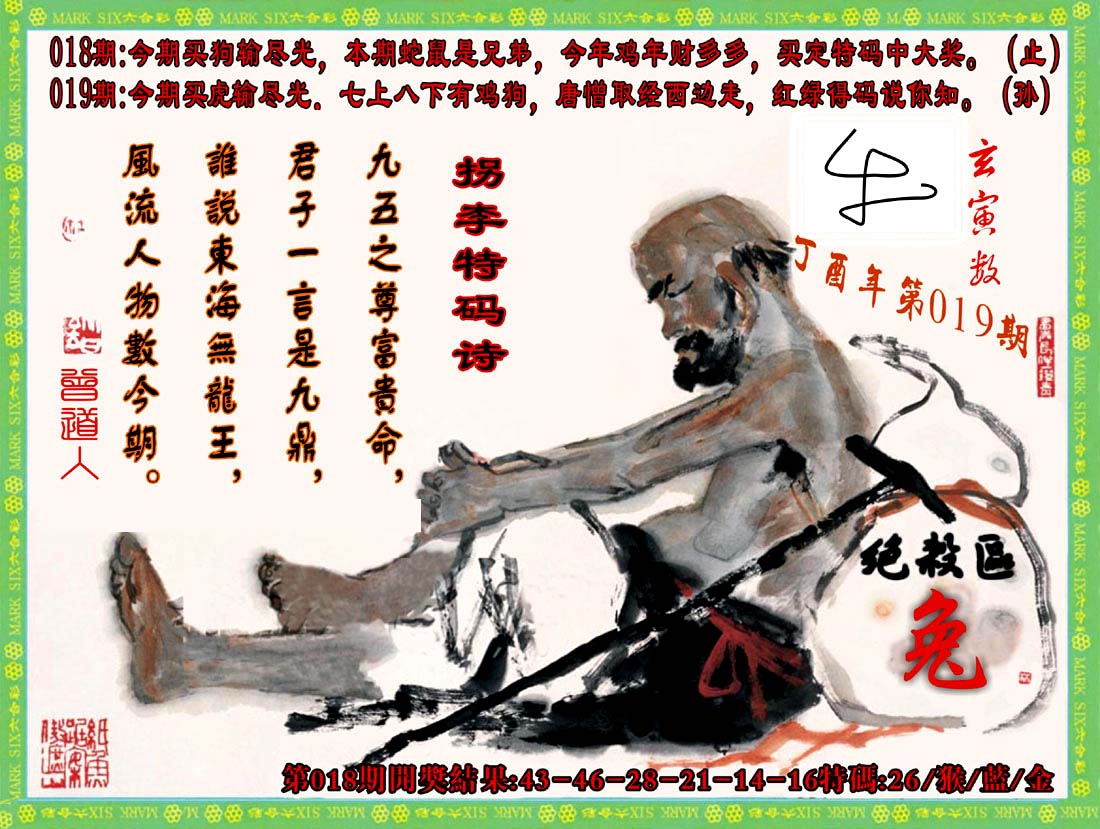 MARK SIX六合彩
018期:今期买狗输尽光，本期蛇鼠是兄弟，今年鸡年财多多，买定特码中大奖。（止）
019期:今期买虎输尽光．七上八下有鸡狗，唐憎取经西边走，红绿得码说你知。（孙）
玄寅数
丁酉年第019期
拐李特码诗
九五之尊富貴命，
君子一言是九鼎，
誰説東海無龍王，
風流人物數今期。
曾道人
绝殺區
兔
第018期開獎結果:43-46-28-21-14-16特碼:26/猴/藍/金